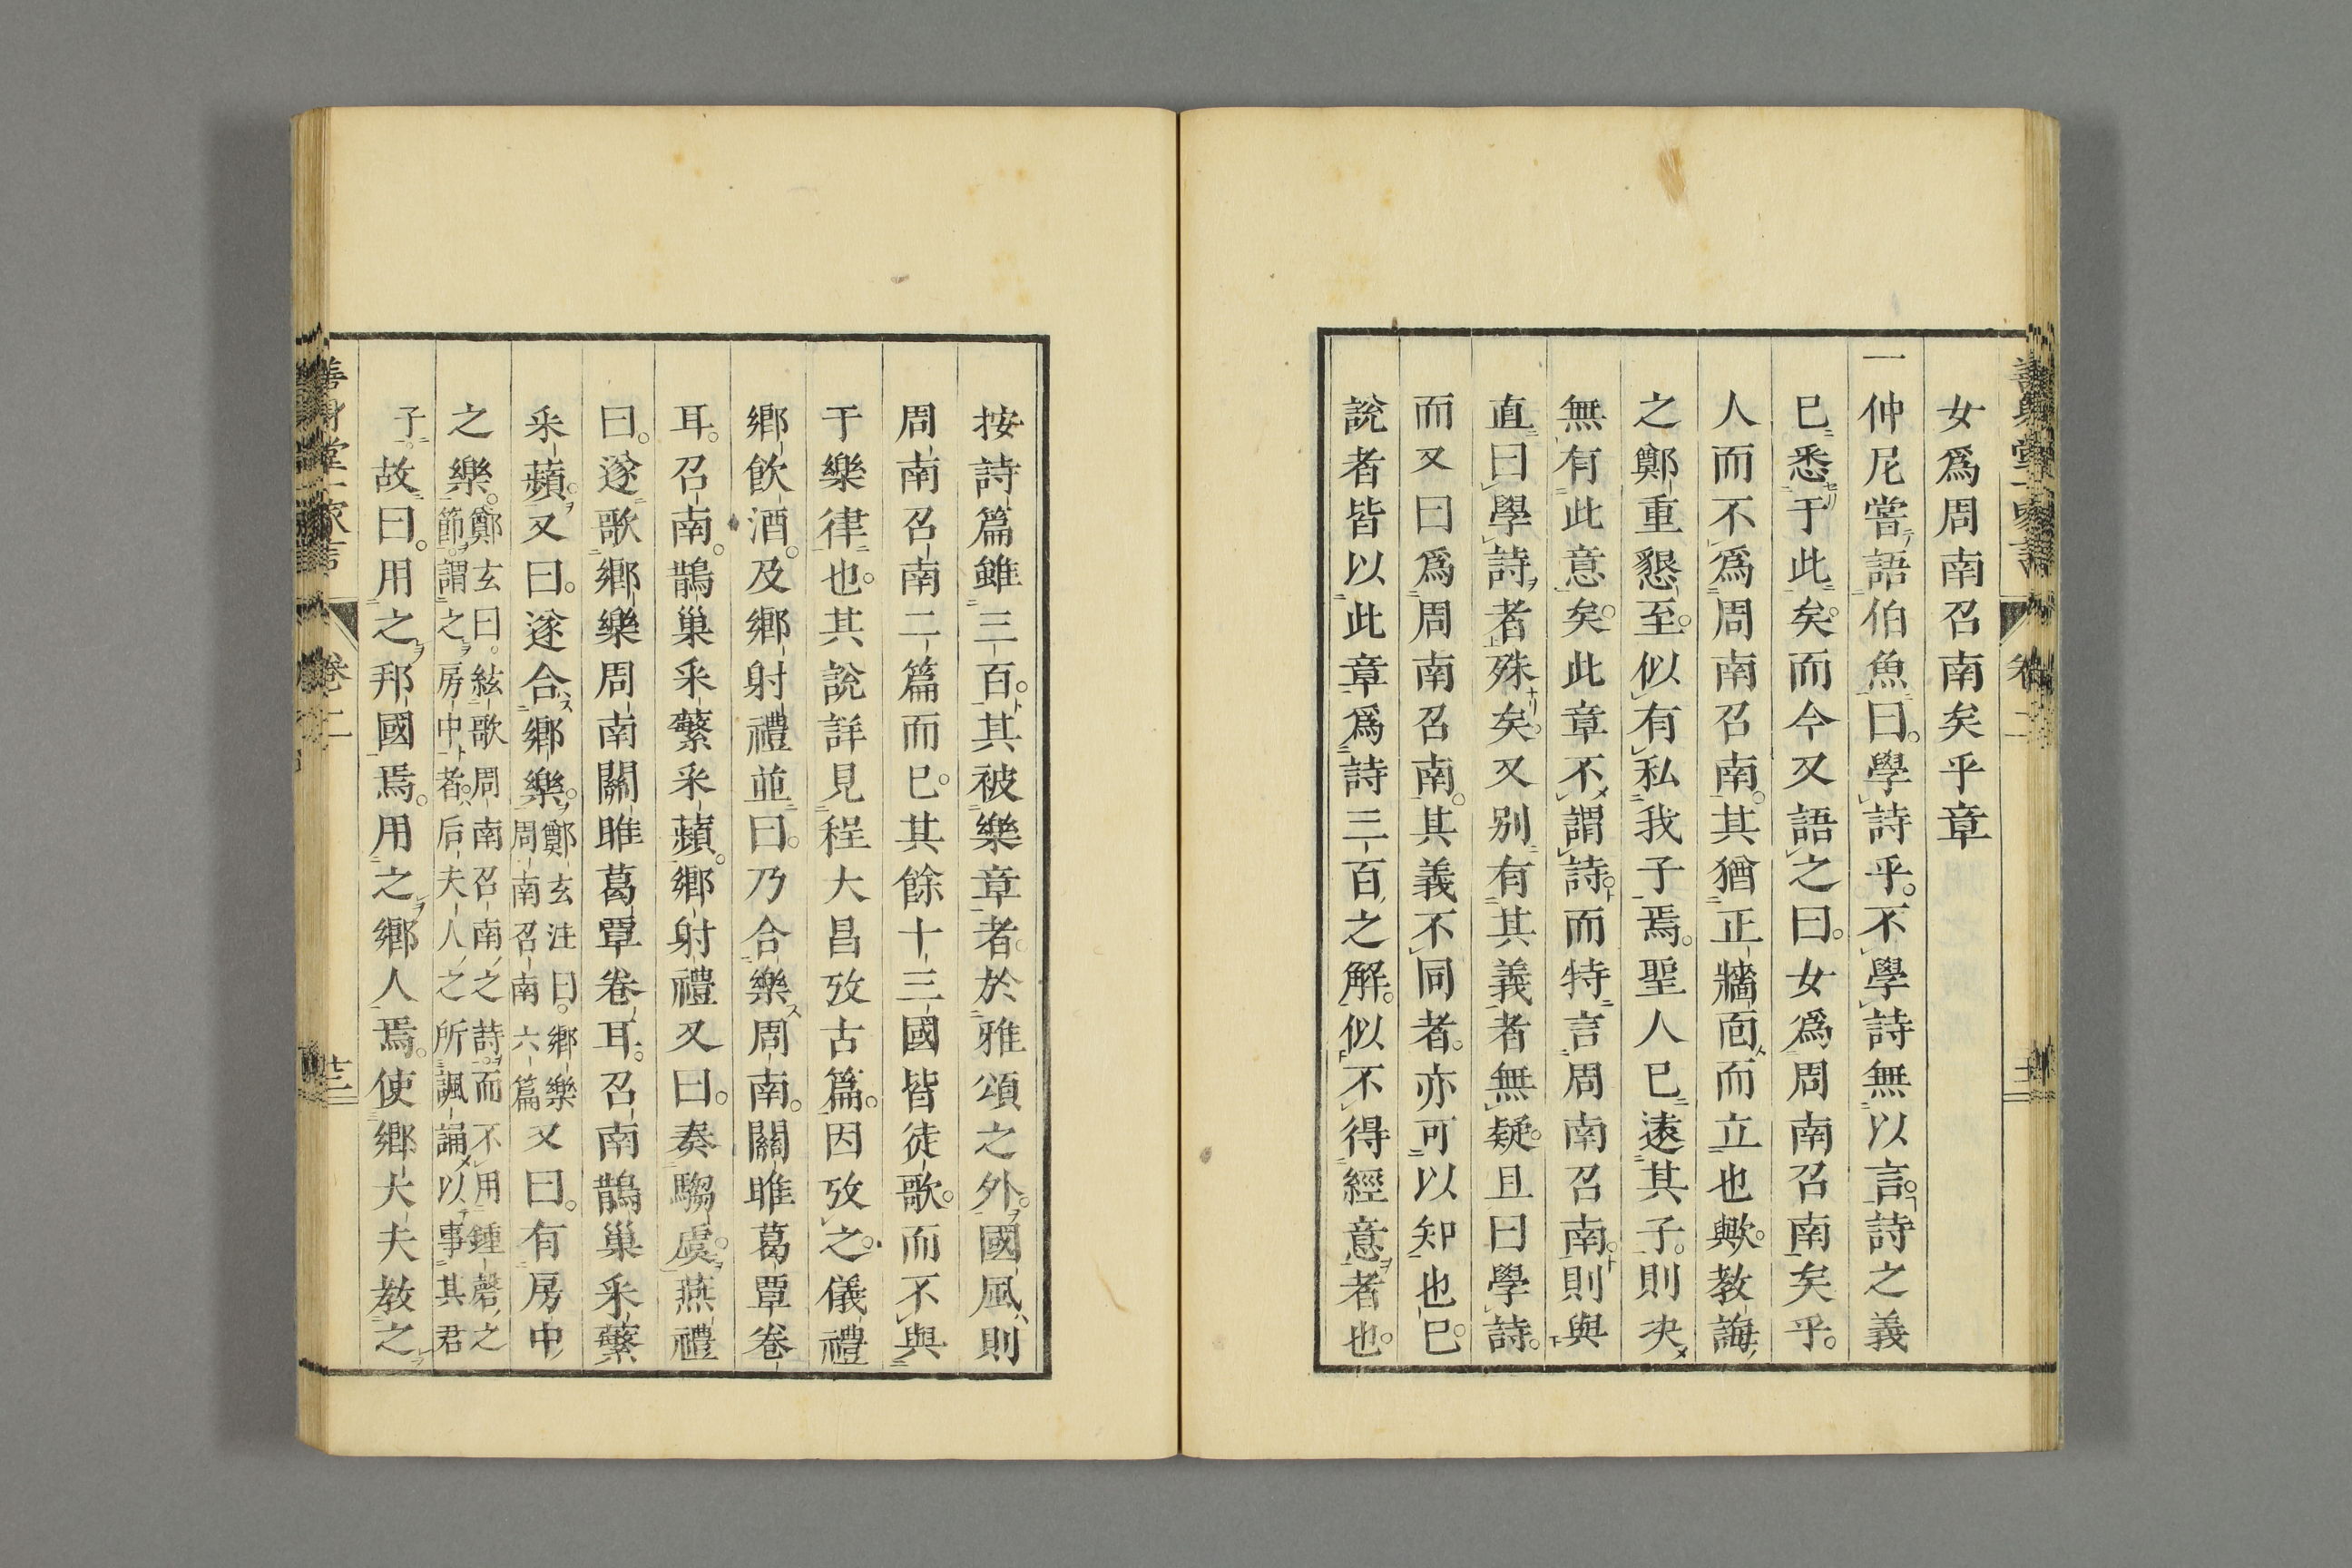 女爲周南召南矣乎章
一仲尼嘗語伯魚曰。學詩乎。不學詩無以言。詩之義
已悉于此矣。而今又語之曰。女爲周南召南矣乎。
人而不爲周南召南。其猶正牆面而立也歟。教誨
之鄭重懇至。似有私我子焉。聖人已遠其子。則決
無有此意矣。此章不謂詩。而特言周南召南。則與
直曰學詩者殊矣。又別有其義者無疑。且曰學詩。
而又曰爲周南召南。其義不同者。亦可以知也已。
說者皆以此章爲詩三百之解。似不得經意者也。
按詩篇雖三百。其被樂章者。於雅頌之外。國風則
周南召南二篇而已。其餘十三國皆徒歌。而不與
于樂律也。其說詳見程大昌攷古篇。因攷之。儀禮
鄉飲酒。及鄉射禮並曰。乃合樂周南。關雎葛覃卷
耳。召南。鵲巢采蘩采蘋。鄉射禮又曰。奏騶虞。燕禮
曰。遂歌鄉樂周南關雎葛覃卷耳。召南鵲巢采蘩
采蘋。又曰。遂合鄉樂。鄭玄注曰。鄉樂周南召南六篇又曰。有房中
之樂。鄭玄曰。絃歌周南召南之詩。而不用鍾磬之節。謂之房中者。后夫人之所諷誦以事其君
子。故曰。用之邦國焉。用之鄉人焉。使鄉大夫教之
善身堂一家言
卷二
十二